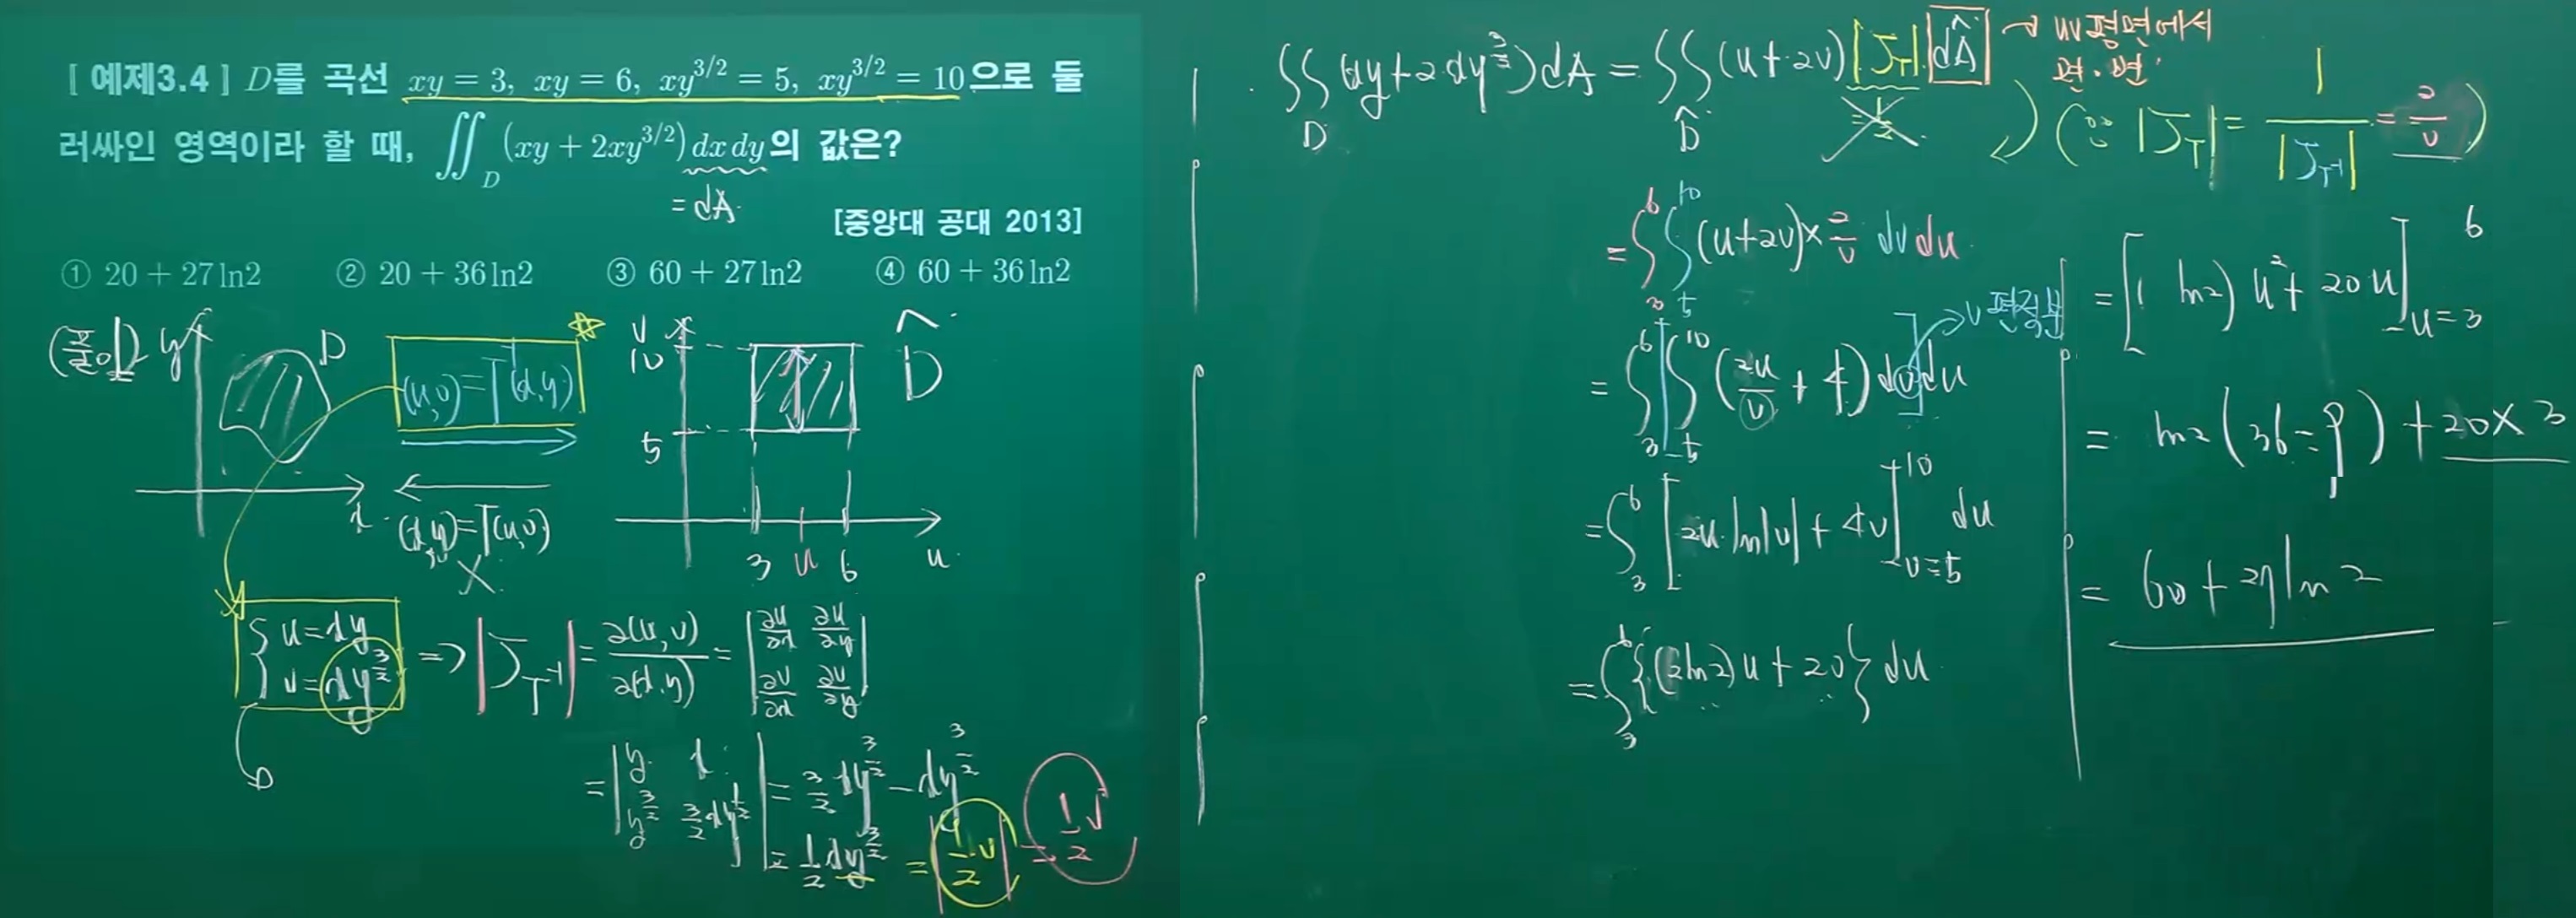 [ 예제3.4 ] D를 곡선 xy = 3, xy = 6, xy^{3/2} = 5, xy^{3/2} = 10으로 둘
러싸인 영역이라 할 때, ∬_D (xy + 2xy^{3/2}) dx dy의 값은?
= dA
[중앙대 공대 2013]
① 20 + 27ln2 ② 20 + 36ln2 ③ 60 + 27ln2 ④ 60 + 36ln2
(풀이) y D
(u,v) = T^{-1}(x,y)
x
(x,y) = T(u,v)
X
v
10
5
D̂
3 u 6 u
{ u = xy
v = xy^{3/2}
⇒ |J_{T^{-1}}| = ∂(u,v)/∂(x,y) = |∂u/∂x ∂u/∂y
∂v/∂x ∂v/∂y|
= |y x
y^{3/2} 3/2 xy^{1/2}| = 3/2 xy^{3/2} - xy^{3/2}
= 1/2 xy^{3/2} = |1/2 v| = 1/2 v
∬_D (xy + 2xy^{3/2}) dA = ∬_D̂ (u + 2v) |J_T| dÂ → uv평면에서
면.변.
(∵ |J_T| = 1/|J_{T^{-1}}| = 2/v)
= ∫_3^6 ∫_5^10 (u + 2v) × 2/v dv du
= ∫_3^6 [∫_5^10 (2u/v + 4) dv] du → v 편적분
= ∫_3^6 [2u ln|v| + 4v]_{v=5}^{10} du
= ∫_3^6 {(2ln2)u + 20} du
= [(ln2) u² + 20u]_{u=3}^6
= ln2 (36 - 9) + 20 × 3
= 60 + 27 ln 2